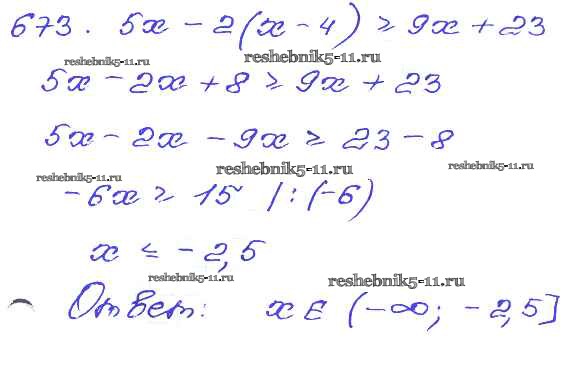 673. 5x - 2(x - 4) ≥ 9x + 23
reshebnik5-11.ru reshebnik5-11.ru
5x - 2x + 8 ≥ 9x + 23
5x - 2x - 9x ≥ 23 - 8
reshebnik5-11.ru reshebnik5-11.ru reshebnik5-11.ru
-6x ≥ 15 | : (-6)
x ≤ -2,5
reshebnik5-11.ru reshebnik5-11.ru
Ответ: x ∈ (-∞; -2,5]